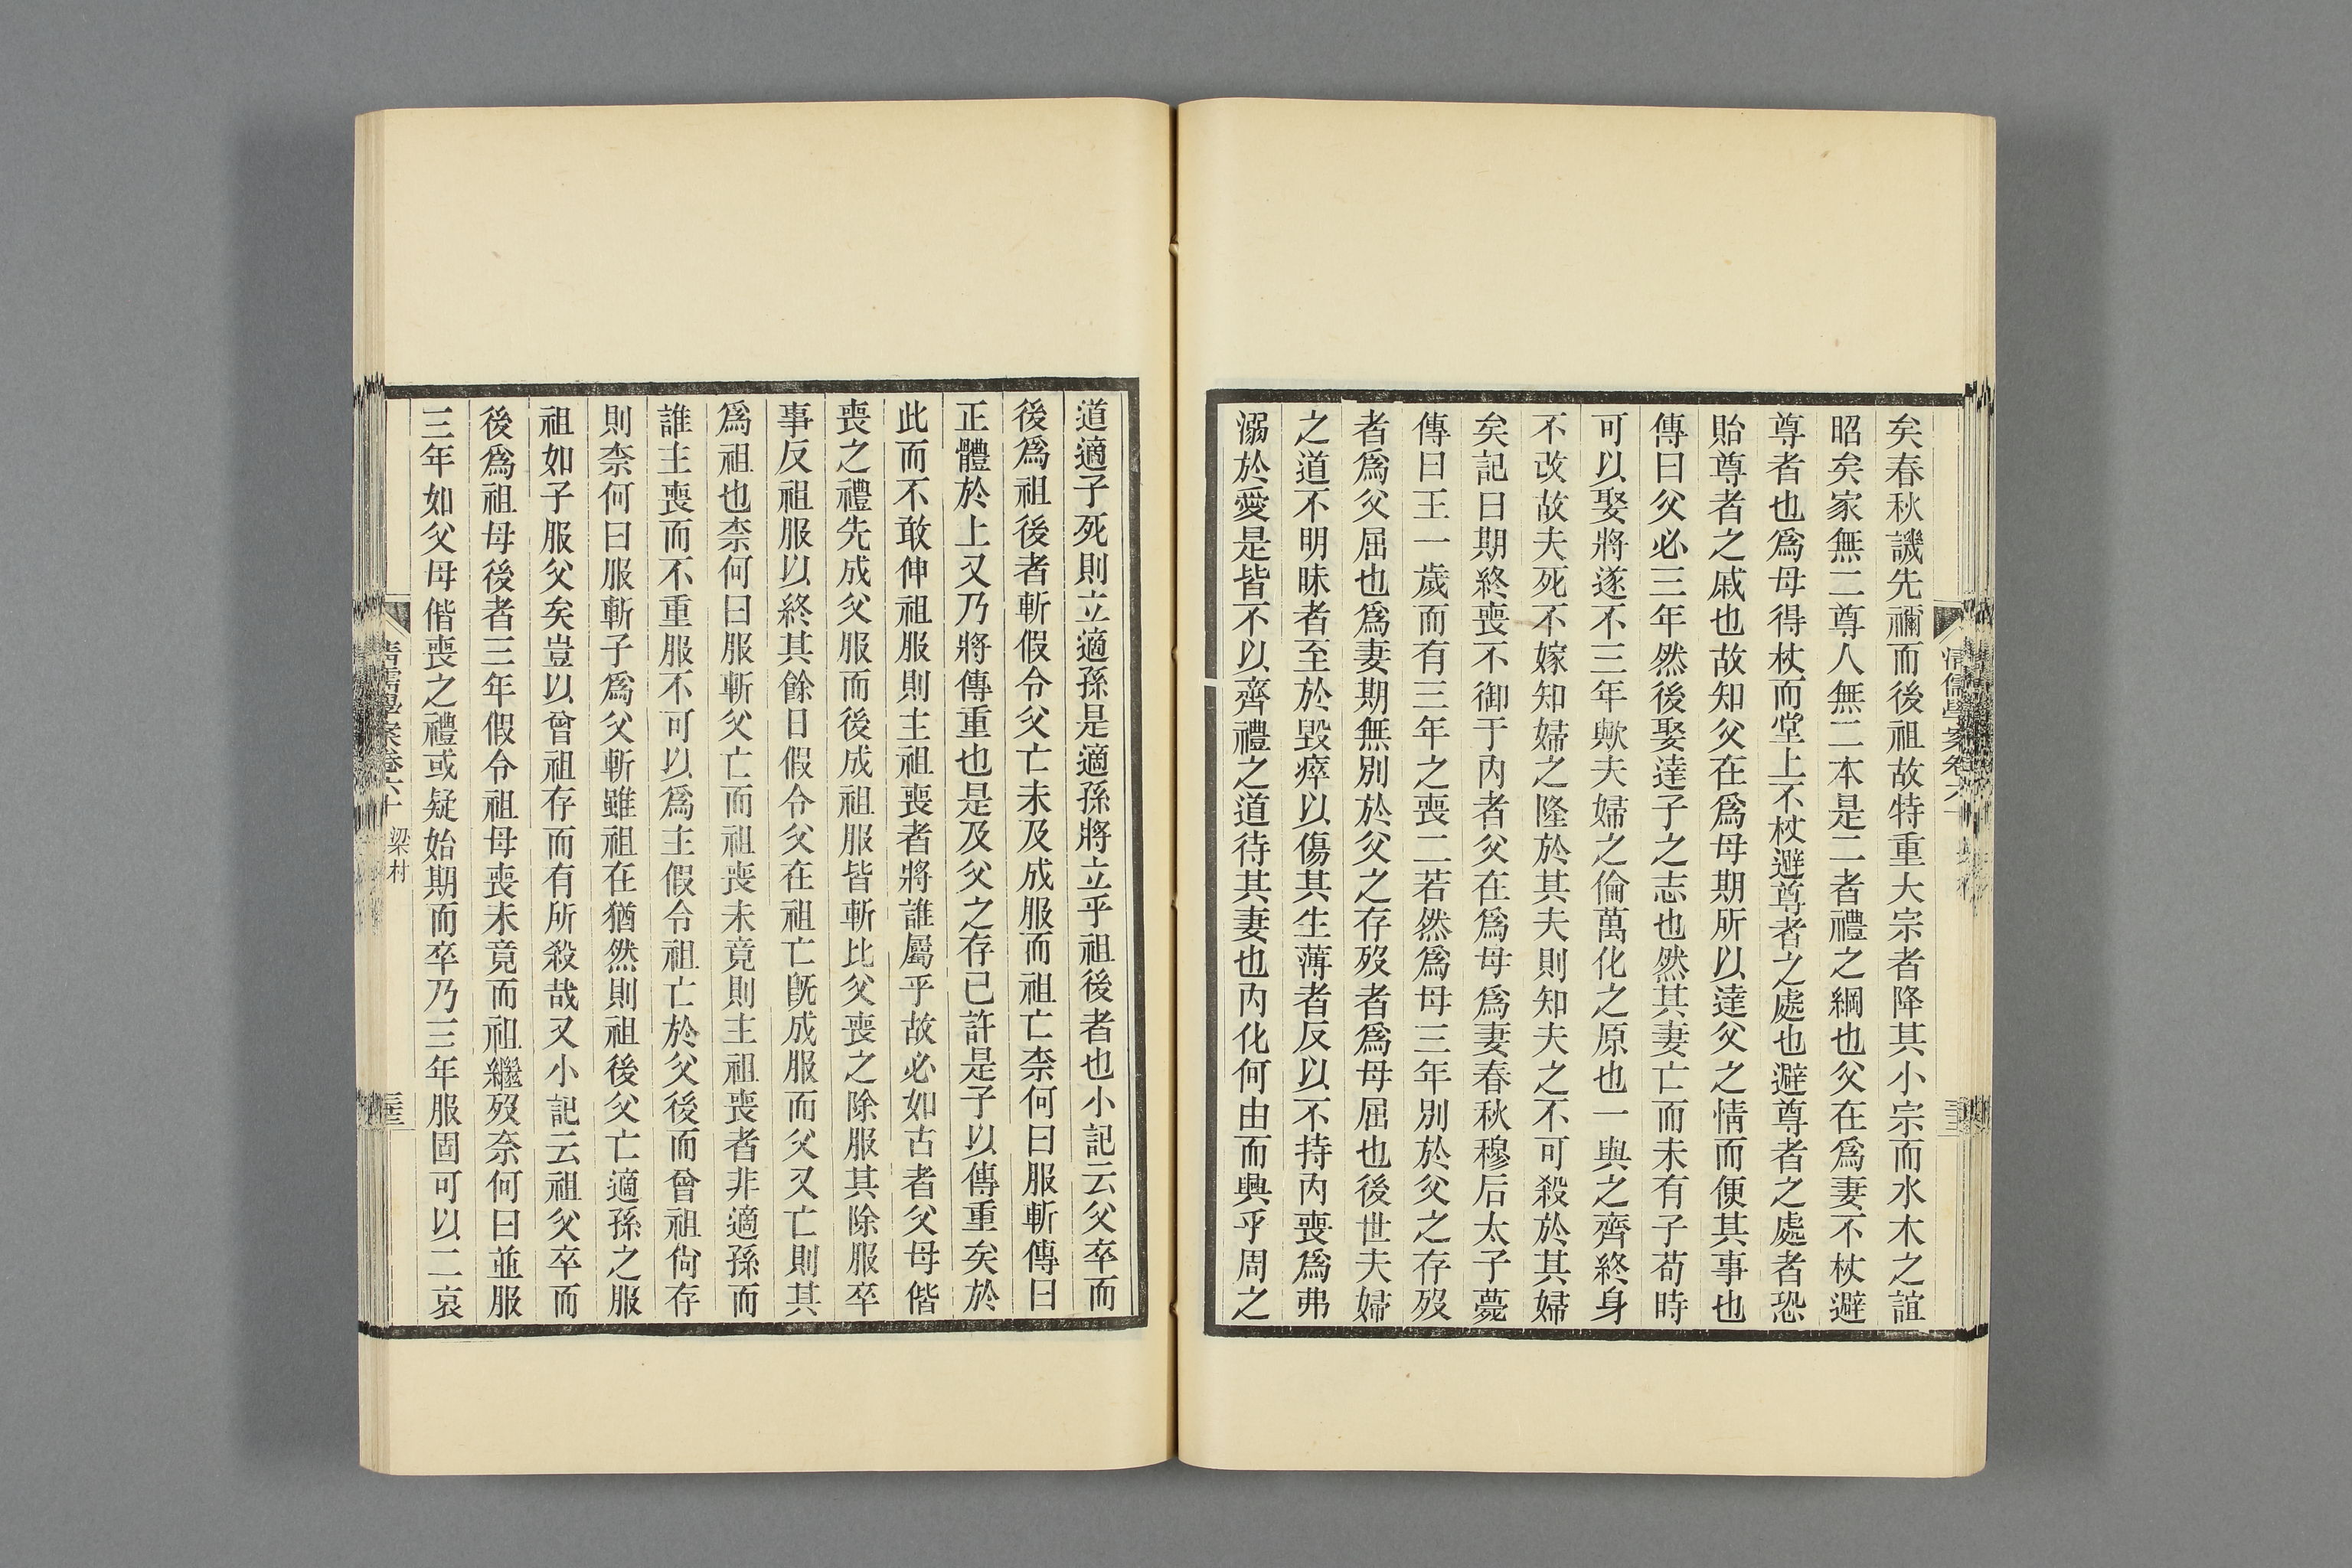 矣春秋譏先禰而後祖故特重大宗者降其小宗而水木之誼
昭矣家無二尊人無二本是二者禮之綱也父在爲妻不杖避
尊者也爲母得杖而堂上不杖避尊者之處也避尊者之處者恐
貽尊者之戚也故知父在爲母期所以達父之情而便其事也
傳曰父必三年然後娶達子之志也然其妻亡而未有子苟時
可以娶將遂不三年歟夫婦之倫萬化之原也一與之齊終身
不改故夫死不嫁知婦之隆於其夫則知夫之不可殺於其婦
矣記曰期終喪不御于內者父在爲母爲妻春秋穆后太子薨
傳曰王一歲而有三年之喪二若然爲母三年別於父之存歿
者爲父屈也爲妻期無別於父之存歿者爲母屈也後世夫婦
之道不明昧者至於毀瘁以傷其生薄者反以不持內喪爲弗
溺於愛是皆不以齊禮之道待其妻也內化何由而興乎周之
清儒學案卷六十
道適子死則立適孫是適孫將立乎祖後者也小記云父卒而
後爲祖後者斬假令父亡未及成服而祖亡柰何曰服斬傳曰
正體於上又乃將傳重也是及父之存已許是子以傳重矣於
此而不敢伸祖服則主祖喪者將誰屬乎故必如古者父母偕
喪之禮先成父服而後成祖服皆斬比父喪之除服其除服卒
事反祖服以終其餘日假令父在祖亡旣成服而父又亡則其
爲祖也柰何曰服斬父亡而祖喪未竟則主祖喪者非適孫而
誰主喪而不重服不可以爲主假令祖亡於父後而曾祖尙存
則柰何曰服斬子爲父斬雖祖在猶然則祖後父亡適孫之服
祖如子服父矣豈以曾祖存而有所殺哉又小記云祖父卒而
後爲祖母後者三年假令祖母喪未竟而祖繼歿奈何曰並服
三年如父母偕喪之禮或疑始期而卒乃三年服固可以二哀
清儒學案卷六十
梁村